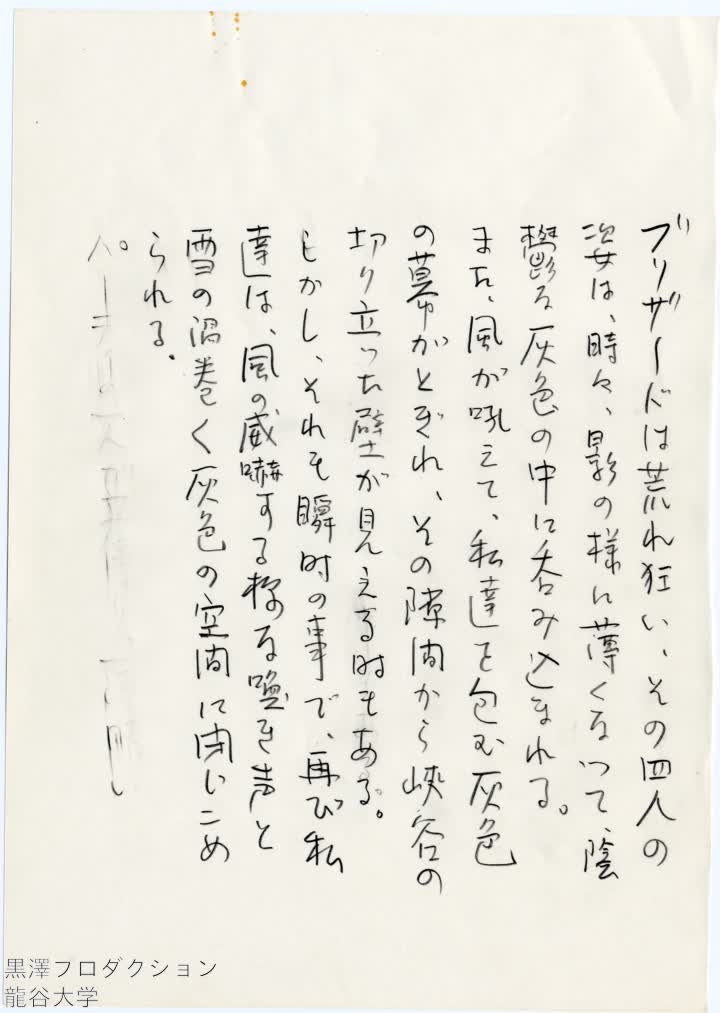 ブリザードは荒れ狂い、その四人の
姿は、時々、影の様に薄くなつて、陰
鬱な灰色の中に呑み込まれる。
また、風が吼えて、私達を包む灰色
の幕がとぎれ、その隙間から峡谷の
切り立った壁が見える時もある。
しかし、それも瞬時の事で、再び私
達は、風の威嚇する様な喚き声と
雪の渦巻く灰色の空間に閉じこめ
られる。
黒澤プロダクション
龍谷大学